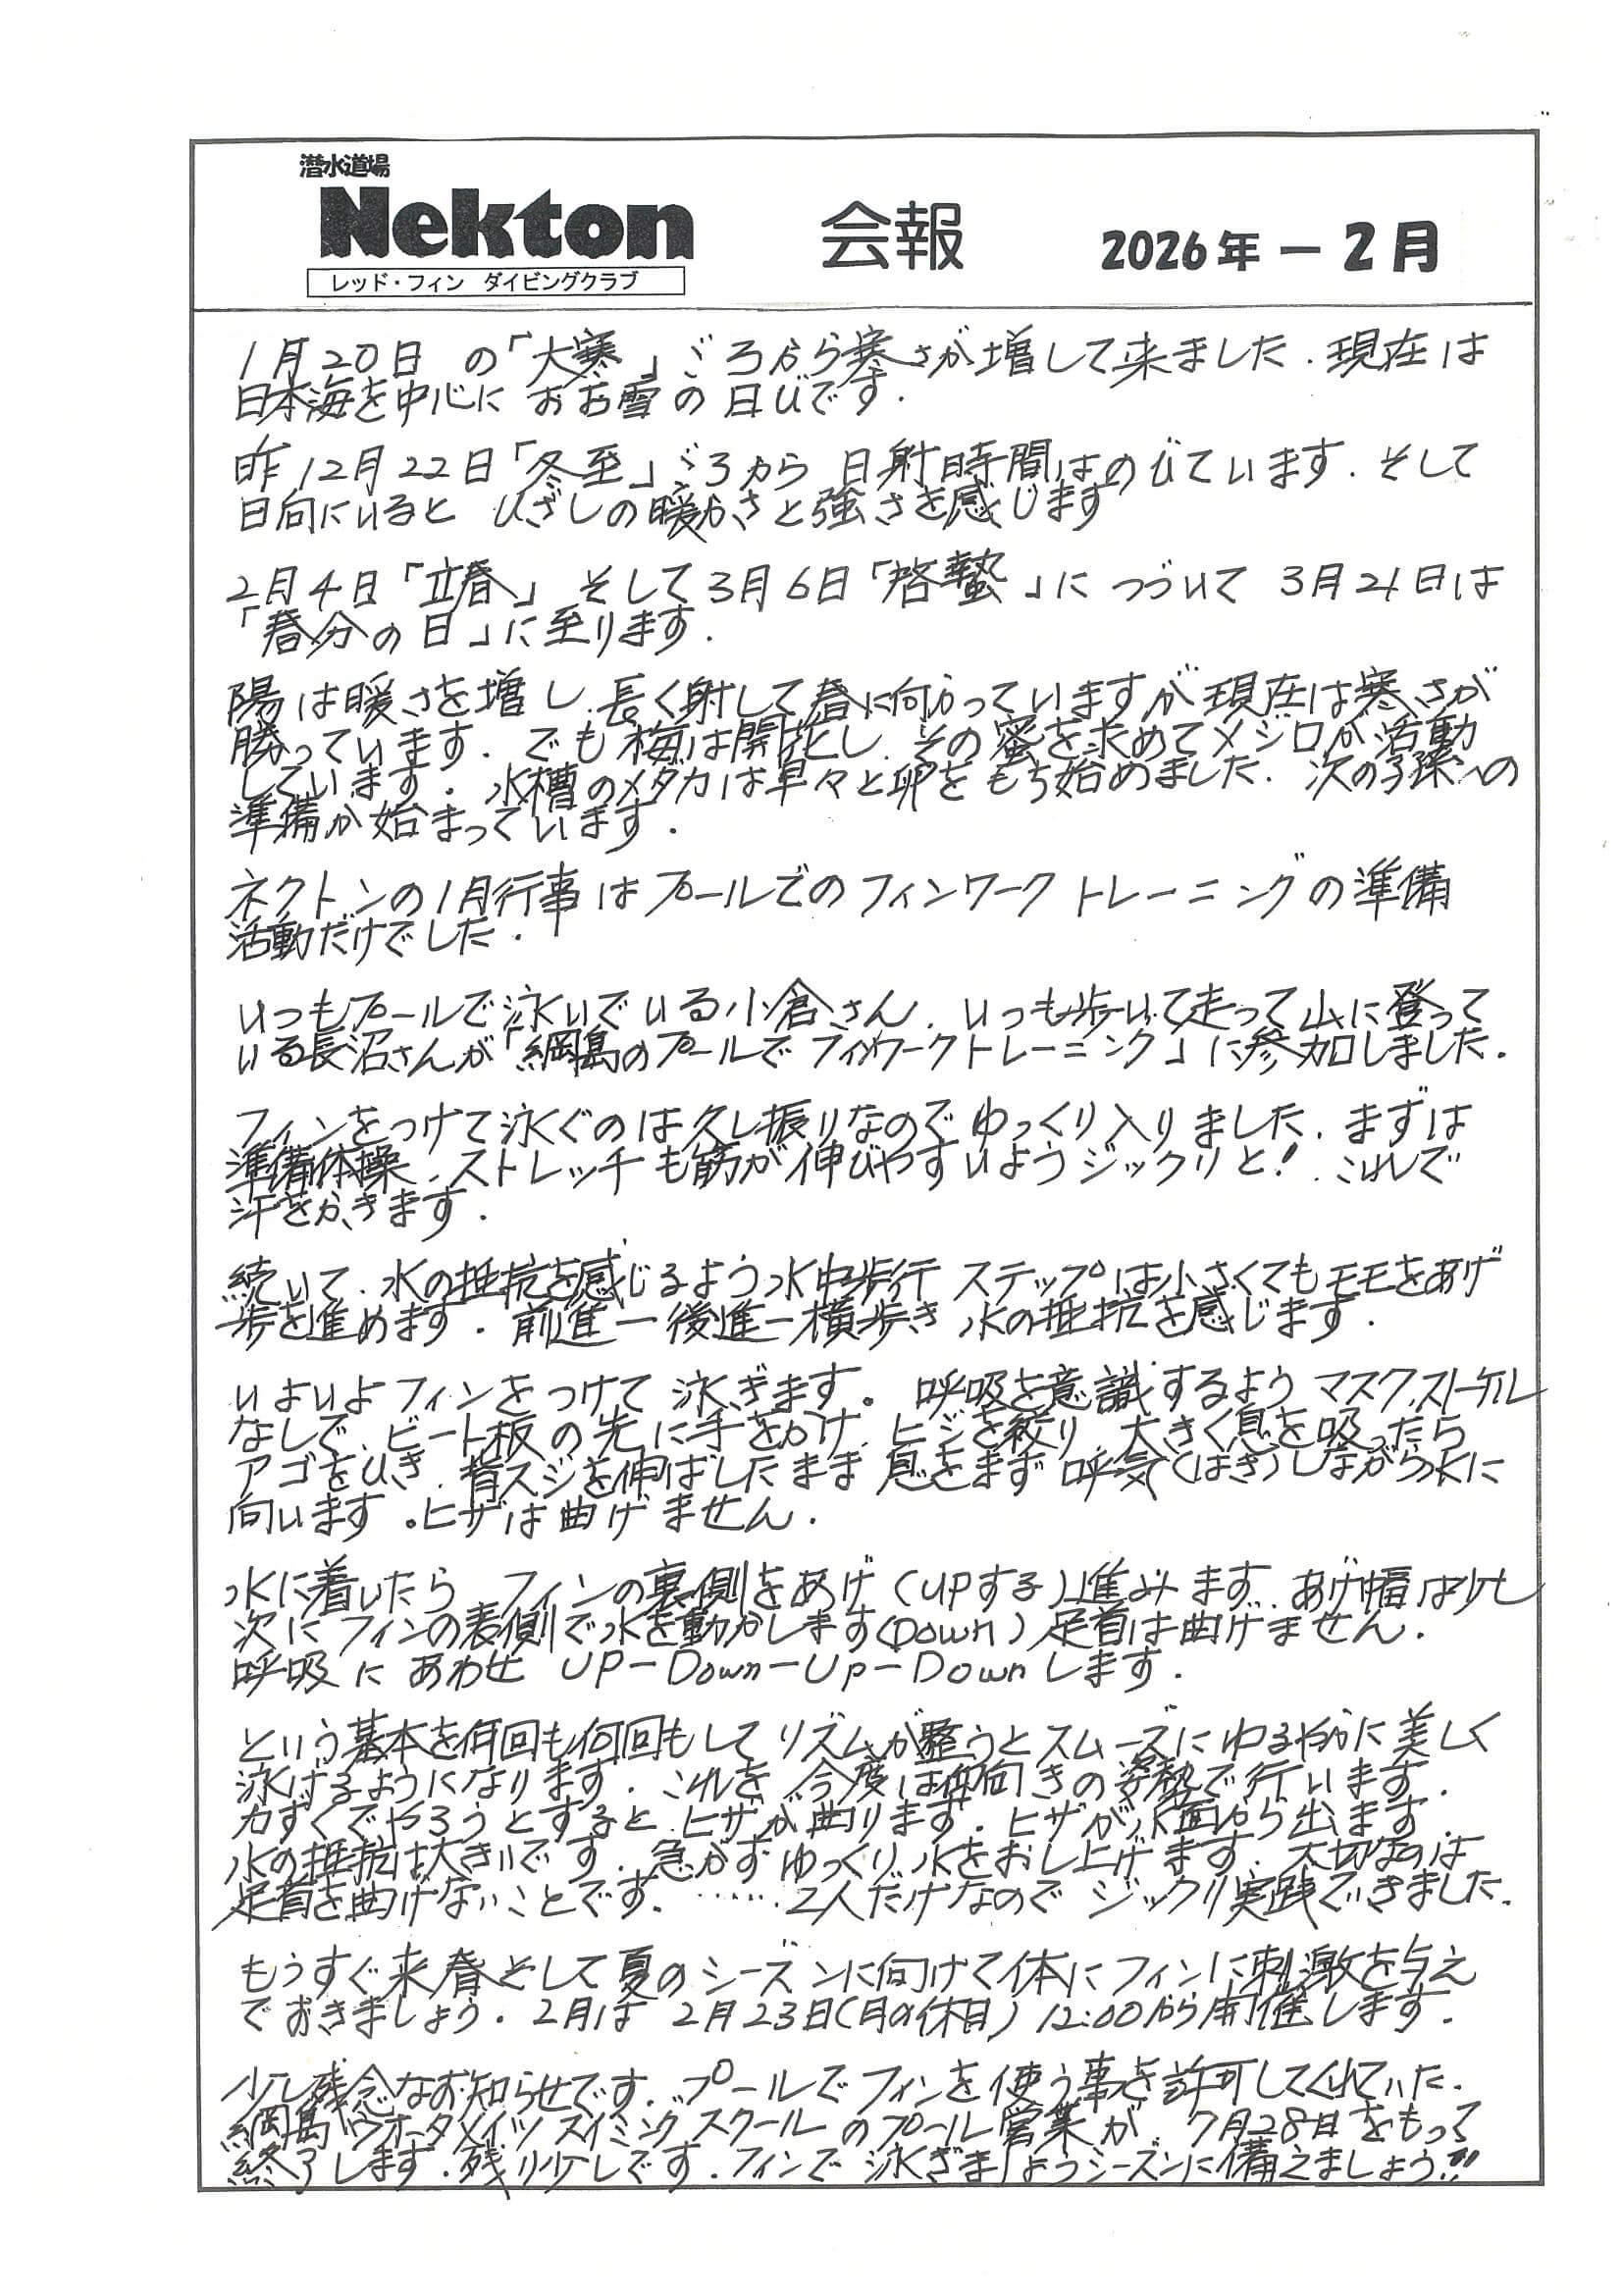 潜水道場
Nekton
レッド・フィン ダイビングクラブ
会報
2026年 ー 2月
1月20日 の「大寒」ごろから寒さが増して来ました. 現在は
日本海を中心に おお雪の日びです.
昨12月22日「冬至」ごろから 日射時間はのびています. そして
日向にいると ひざしの暖かさと強さを感じます
2月4日「立春」 そして3月6日「啓蟄」に つづいて 3月21日は
「春分の日」に至ります.
陽は暖さを増し 長く射して春に向かっていますが現在は寒さが
勝っています. でも梅は開花し その蜜を求めてメジロが活動
しています. 水槽のメダカは早々と卵をもち始めました. 次の子孫への
準備が始まっています.
ネクトンの1月行事はプールでのフィンワークトレーニングの準備
活動だけでした.
いつもプールで泳いでいる小倉さん. いつも歩いて走って山に登って
いる長沼さんが「綱島のプールでフィンワークトレーニング」に参加しました.
フィンをつけて泳ぐのは久し振りなのでゆっくり入りました. まずは
準備体操. ストレッチも筋が伸びやすいようジックリと! これで
汗をかきます.
続いて. 水の抵抗を感じるよう水中歩行 ステップは小さくてもモモをあげ
歩を進めます. 前進ー後進ー横歩き 水の抵抗を感じます.
いよいよフィンをつけて 泳ぎます。 呼吸を意識するよう マスク.ストーケル
なしで. ビート板の先に手をかけ. ヒジを絞り 大きく息を吸ったら
アゴをひき. 背スジを伸ばしたまま 息をまず 呼気(はき)しながら水に
向います。ヒザは曲げません.
水に着いたら フィンの裏側をあげ (UPする)進みます. あげ幅は少し
次に フィンの表側で水を動かします(Down) 足首は曲げません.
呼吸に あわせ UP－Down－Up－Downします.
という基本を何回も何回もして リズムが整うとスムーズにゆるやかに美しく
泳げるようになります. これを 今度は仰向きの姿勢で行います.
力ずくでやろうとすると. ヒザが曲ります. ヒザが水面から出ます.
水の抵抗は大きいです. 急がずゆっくり水をおし上げます. 大切なのは
足首を曲げないことです. ‥‥‥2人だけなので ジックリ実践できました.
もうすぐ来春そして夏のシーズンに向けて体にフィンに刺激を与え
ておきましょう. 2月は 2月23日(月の休日) 12:00から開催します.
少し残念なお知らせです. プールでフィンを使う事を許可してくれていた.
綱島ウオータメイツスイミングスクールのプール営業が 7月28日をもって
終了します. 残り少しです. フィンで泳ぎましょうシーズンに備えましょう!!